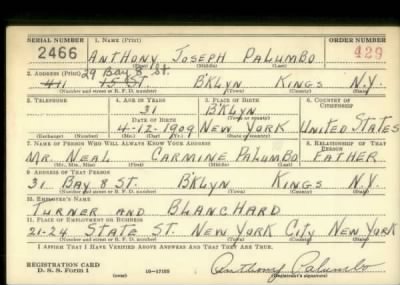 SERIAL NUMBER 1. NAME (Print) ORDER NUMBER
2466 ANTHONY JOSEPH PALUMBO 429
(First) (Middle) (Last)
2. ADDRESS (Print) 29 BAY 8 St.
411 15 ST. B'KLYN KINGS N.Y.
(Number and street or R. F. D. number) (Town) (County) (State)
3. TELEPHONE 4. AGE IN YEARS 5. PLACE OF BIRTH 6. COUNTRY OF CITIZENSHIP
31 B'KLYN
DATE OF BIRTH (Town or county)
4-12-1909 NEW YORK UNITED STATES
(Exchange) (Number) (Mo.) (Day) (Yr.) (State or country)
7. NAME OF PERSON WHO WILL ALWAYS KNOW YOUR ADDRESS 8. RELATIONSHIP OF THAT PERSON
MR. NEAL CARMINE PALUMBO FATHER
(Mr., Mrs., Miss) (First) (Middle) (Last)
9. ADDRESS OF THAT PERSON
31 BAY 8 ST. B'KLYN KINGS N.Y.
(Number and street or R. F. D. number) (Town) (County) (State)
10. EMPLOYER'S NAME
TURNER AND BLANCHARD
11. PLACE OF EMPLOYMENT OR BUSINESS
21-24 STATE ST. NEW YORK CITY NEW YORK
(Number and street or R. F. D. number) (Town) (County) (State)
I AFFIRM THAT I HAVE VERIFIED ABOVE ANSWERS AND THAT THEY ARE TRUE.
REGISTRATION CARD
D. S. S. Form 1 (over) 16-17105 Anthony Palumbo
(Registrant's signature)